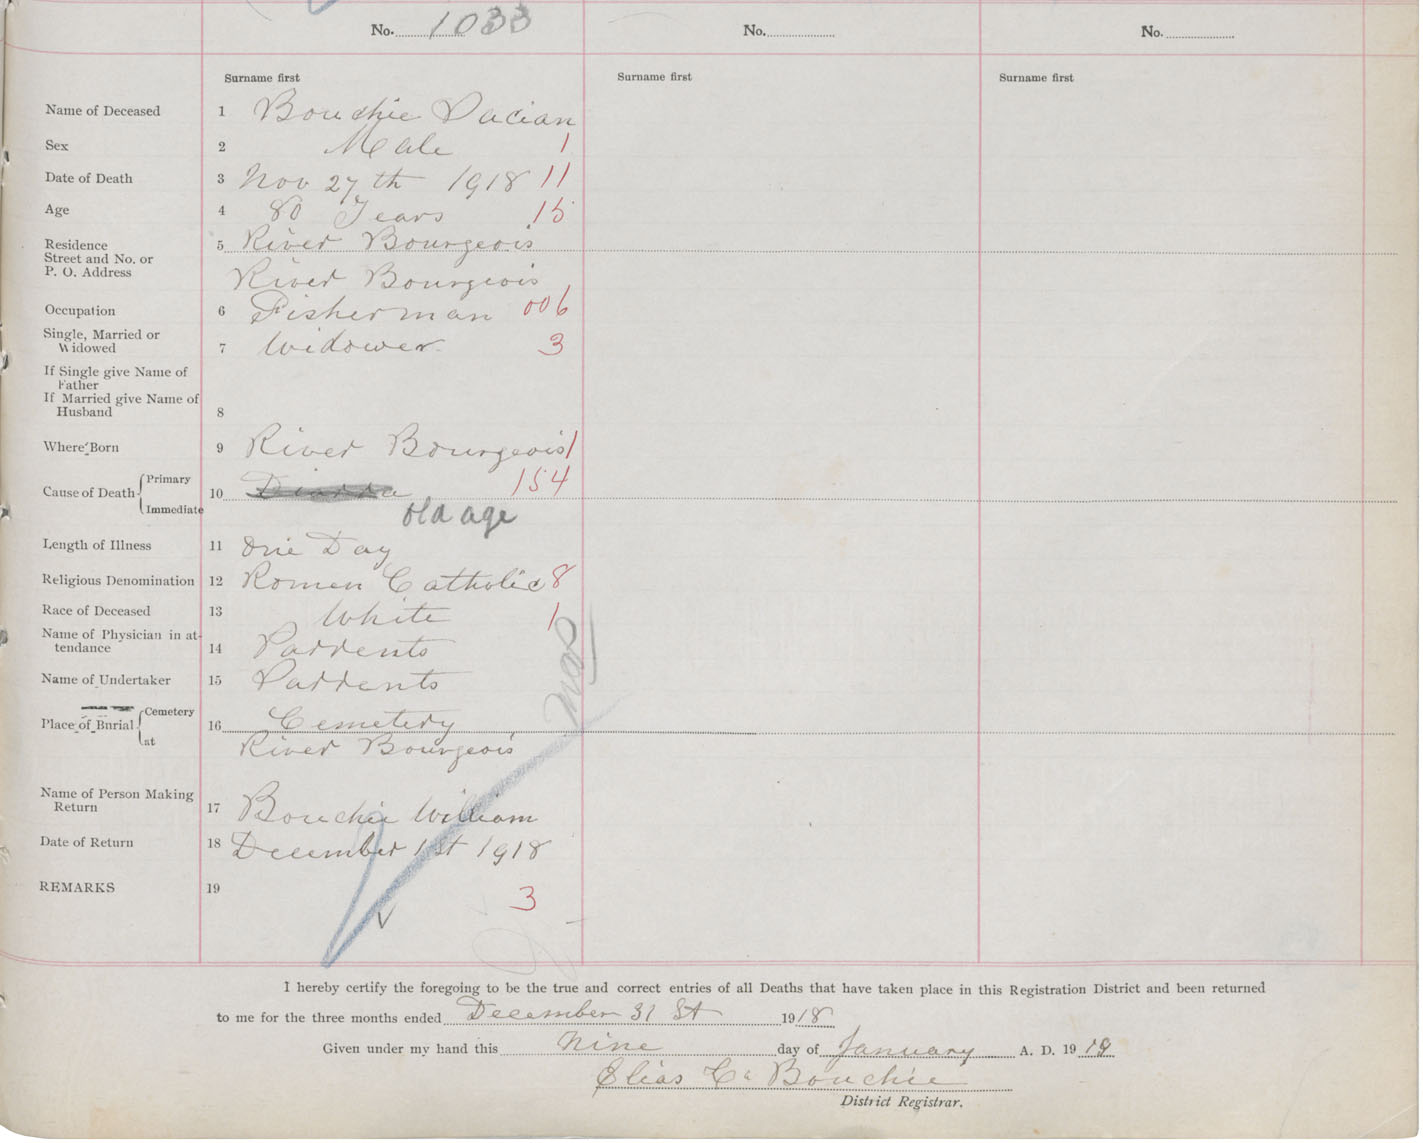 No. 1033 No. No.
Surname first Surname first Surname first
Name of Deceased 1 Bouchie Dacian
Sex 2 Male 1
Date of Death 3 Nov 27th 1918 11
Age 4 80 Years 15
Residence 5 River Bourgeois
Street and No. or
P. O. Address River Bourgeois
Occupation 6 Fisherman 006
Single, Married or
Widowed 7 Widower 3
If Single give Name of
Father
If Married give Name of
Husband 8
Where Born 9 River Bourgeois 1
Cause of Death Primary 10 154
Immediate old age
Length of Illness 11 One Day
Religious Denomination 12 Romen Catholic 8
Race of Deceased 13 White 1
Name of Physician in at-
tendance 14 Parrents
Name of Undertaker 15 Parrents
Place of Burial Cemetery 16 Cemetery
at River Bourgeois
Name of Person Making
Return 17 Bouchie William
Date of Return 18 December 1st 1918
REMARKS 19 3
I hereby certify the foregoing to be the true and correct entries of all Deaths that have taken place in this Registration District and been returned
to me for the three months ended December 31 St 1918
Given under my hand this Nine day of January A. D. 19 19
Elias C. Bouchie
District Registrar.